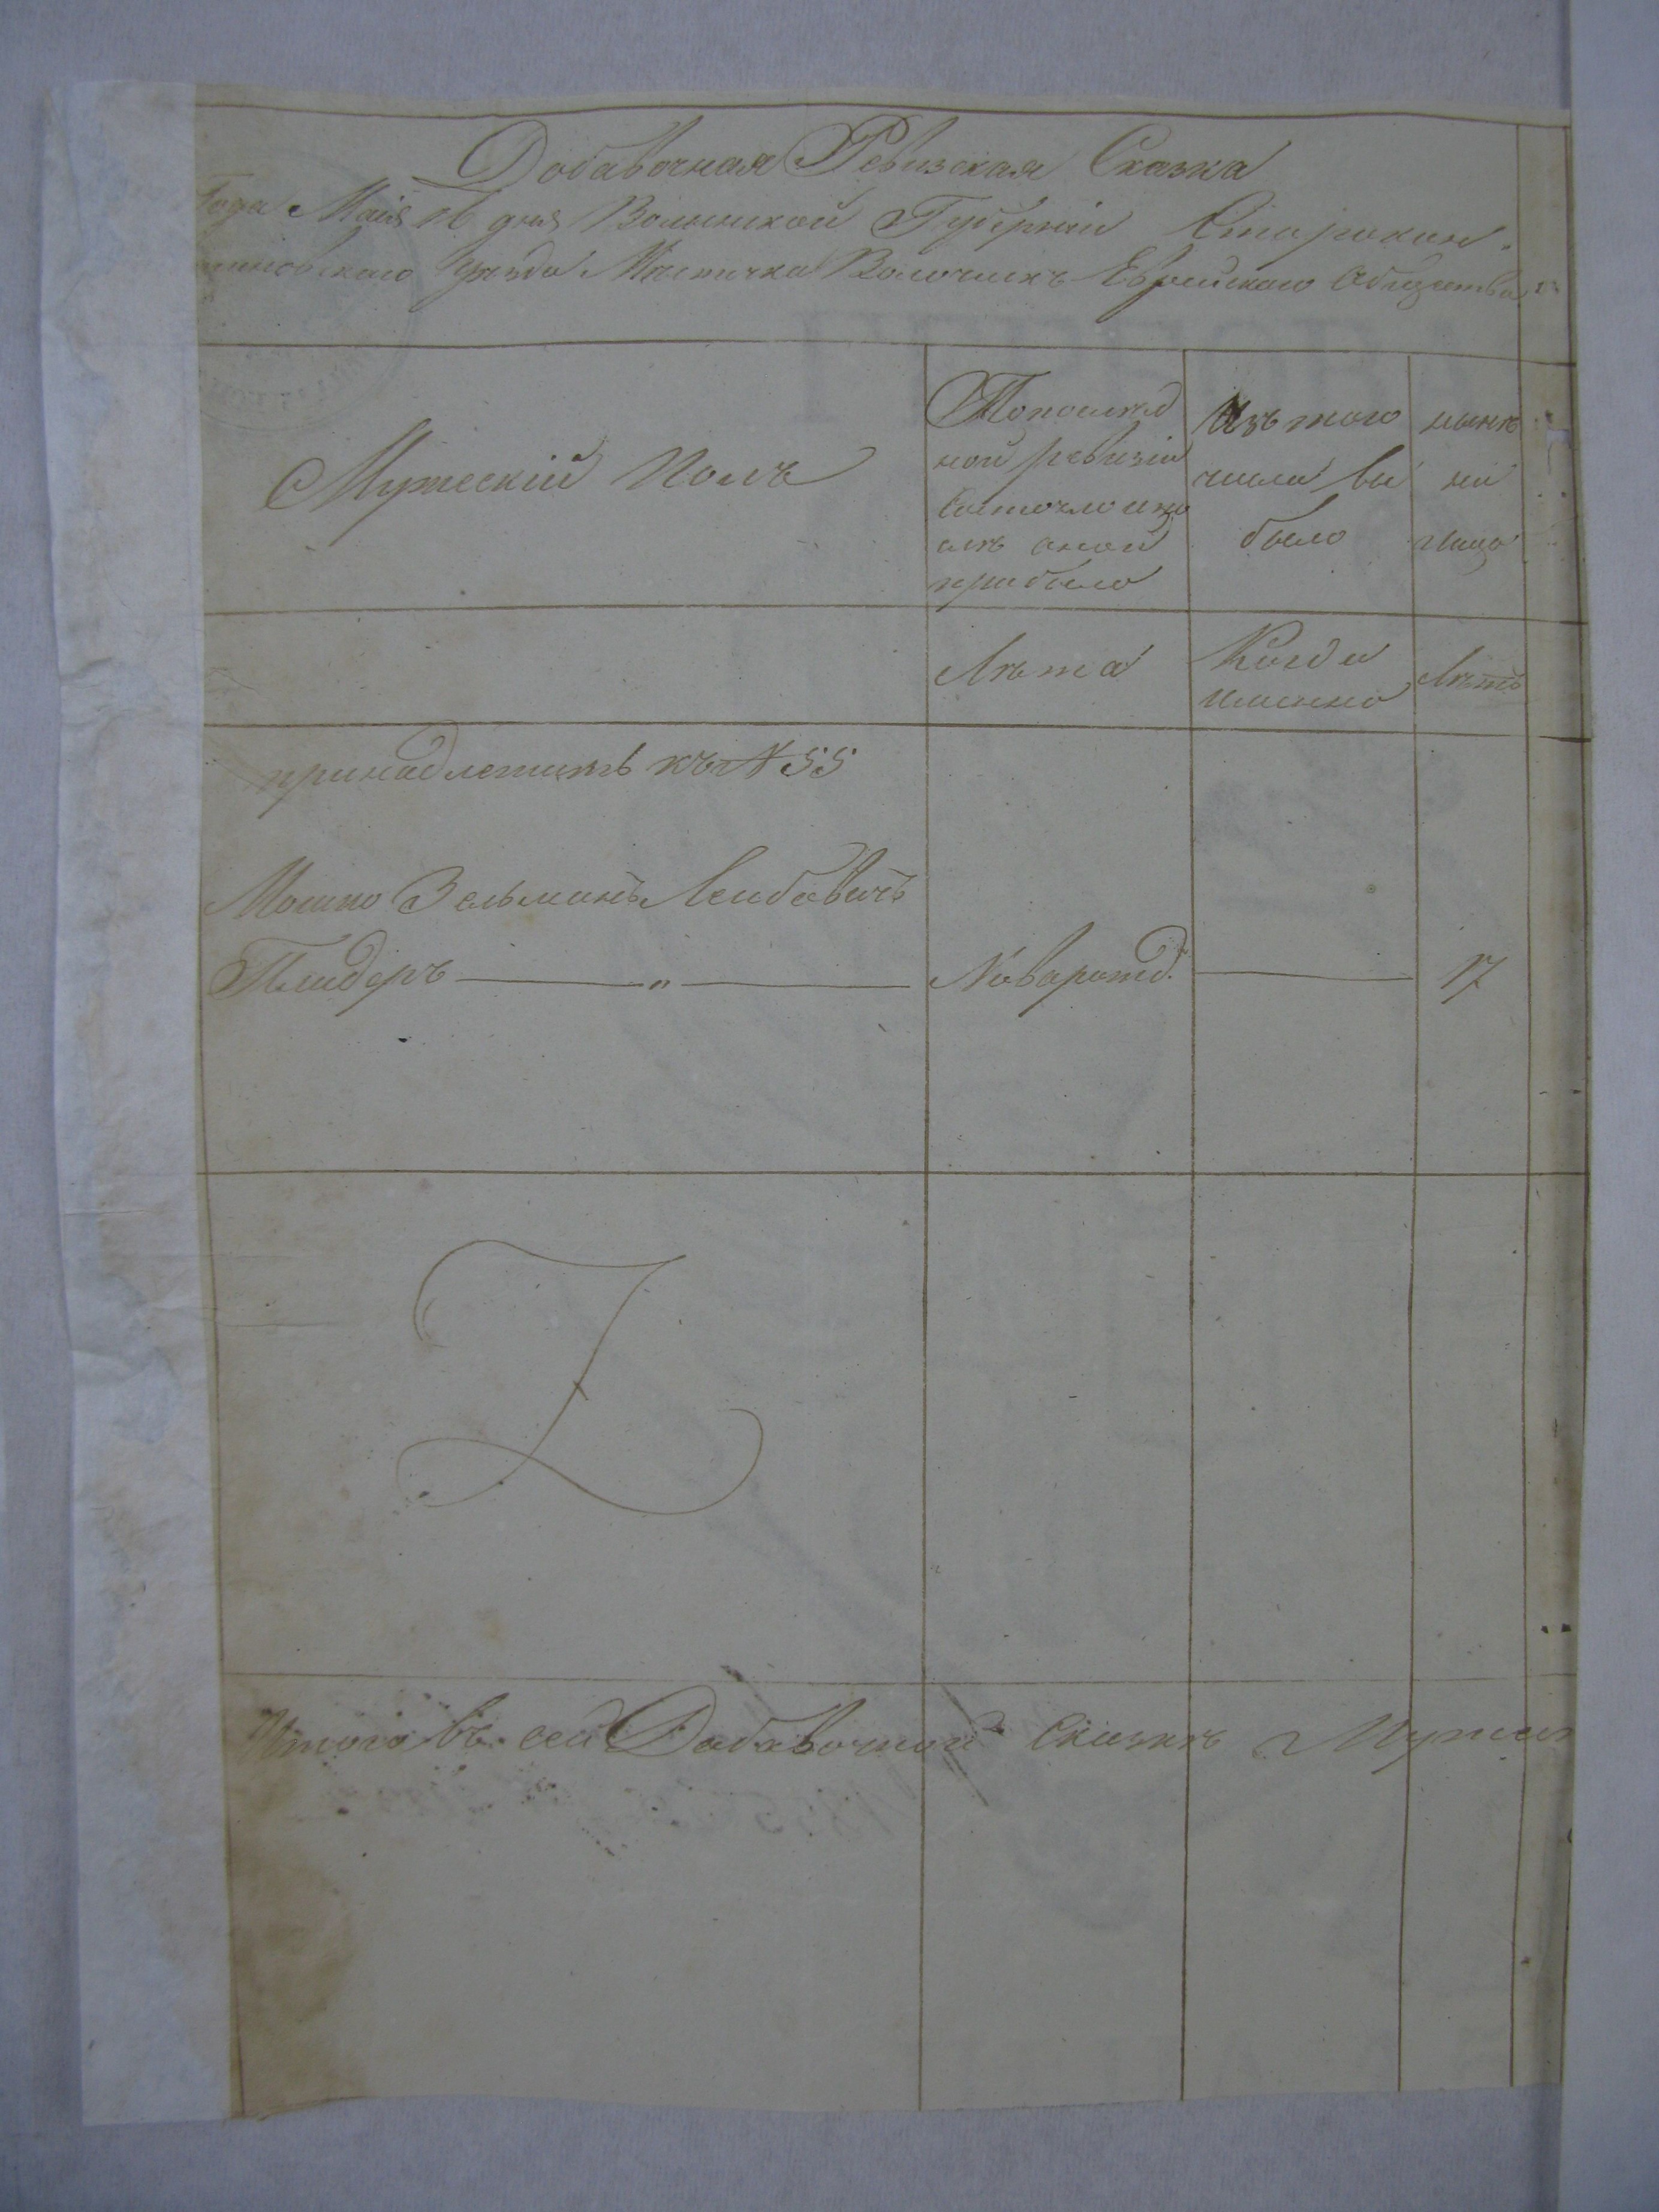 Добавочная Ревизская Сказка
Года Маія 16 дня Волынской Губерніи Старокон-
тиновскаго уѣзда Мѣстечка Волочискъ Еврейскаго Общества
Мужескій Полъ
По послѣд
ной ревизіи
состояло и по
слѣ оной
прибыло
Изъ того
числа вы
было
нынѣ
на
лицо
Лѣта
Когда
именно
Лѣта
принадлежитъ къ № 55
Мошко Зельманъ Лейбовичъ
Новорожд.
17
Итого въ сей Добавочной Сказкѣ Мужеск